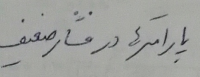 پارامترهٔ در فشار ضعیف